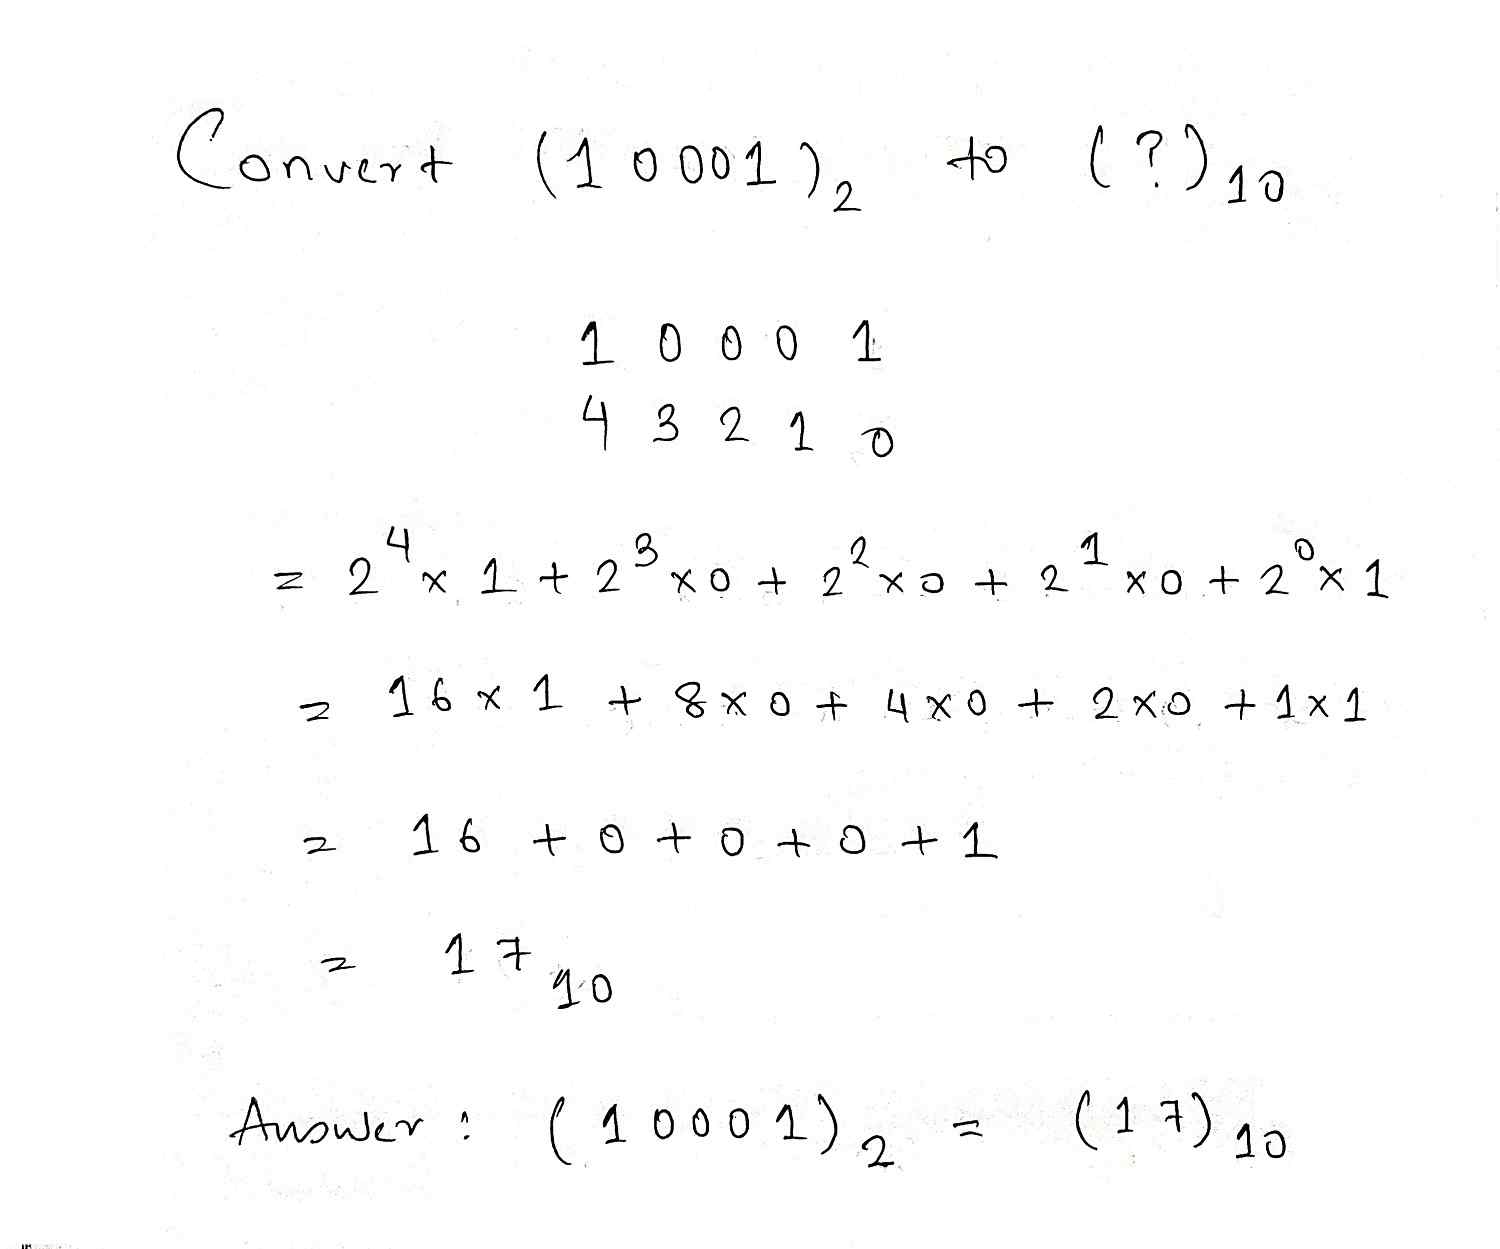 Convert (10001)₂ to (?)₁₀
1 0 0 0 1
4 3 2 1 0
= 2⁴ × 1 + 2³ × 0 + 2² × 0 + 2¹ × 0 + 2⁰ × 1
= 16 × 1 + 8 × 0 + 4 × 0 + 2 × 0 + 1 × 1
= 16 + 0 + 0 + 0 + 1
= 17₁₀
Answer : (10001)₂ = (17)₁₀